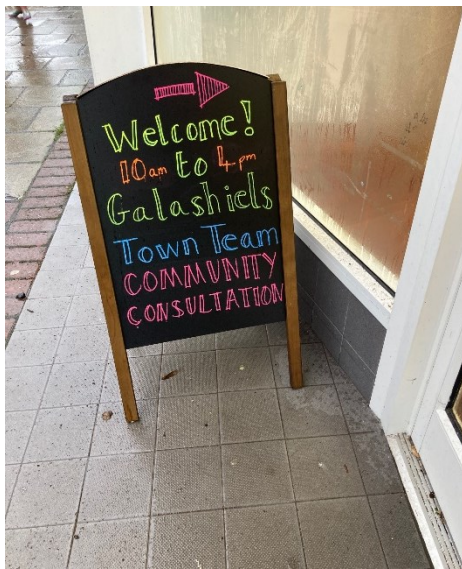 Welcome!
10am to 4pm
Galashiels
Town Team
COMMUNITY
CONSULTATION